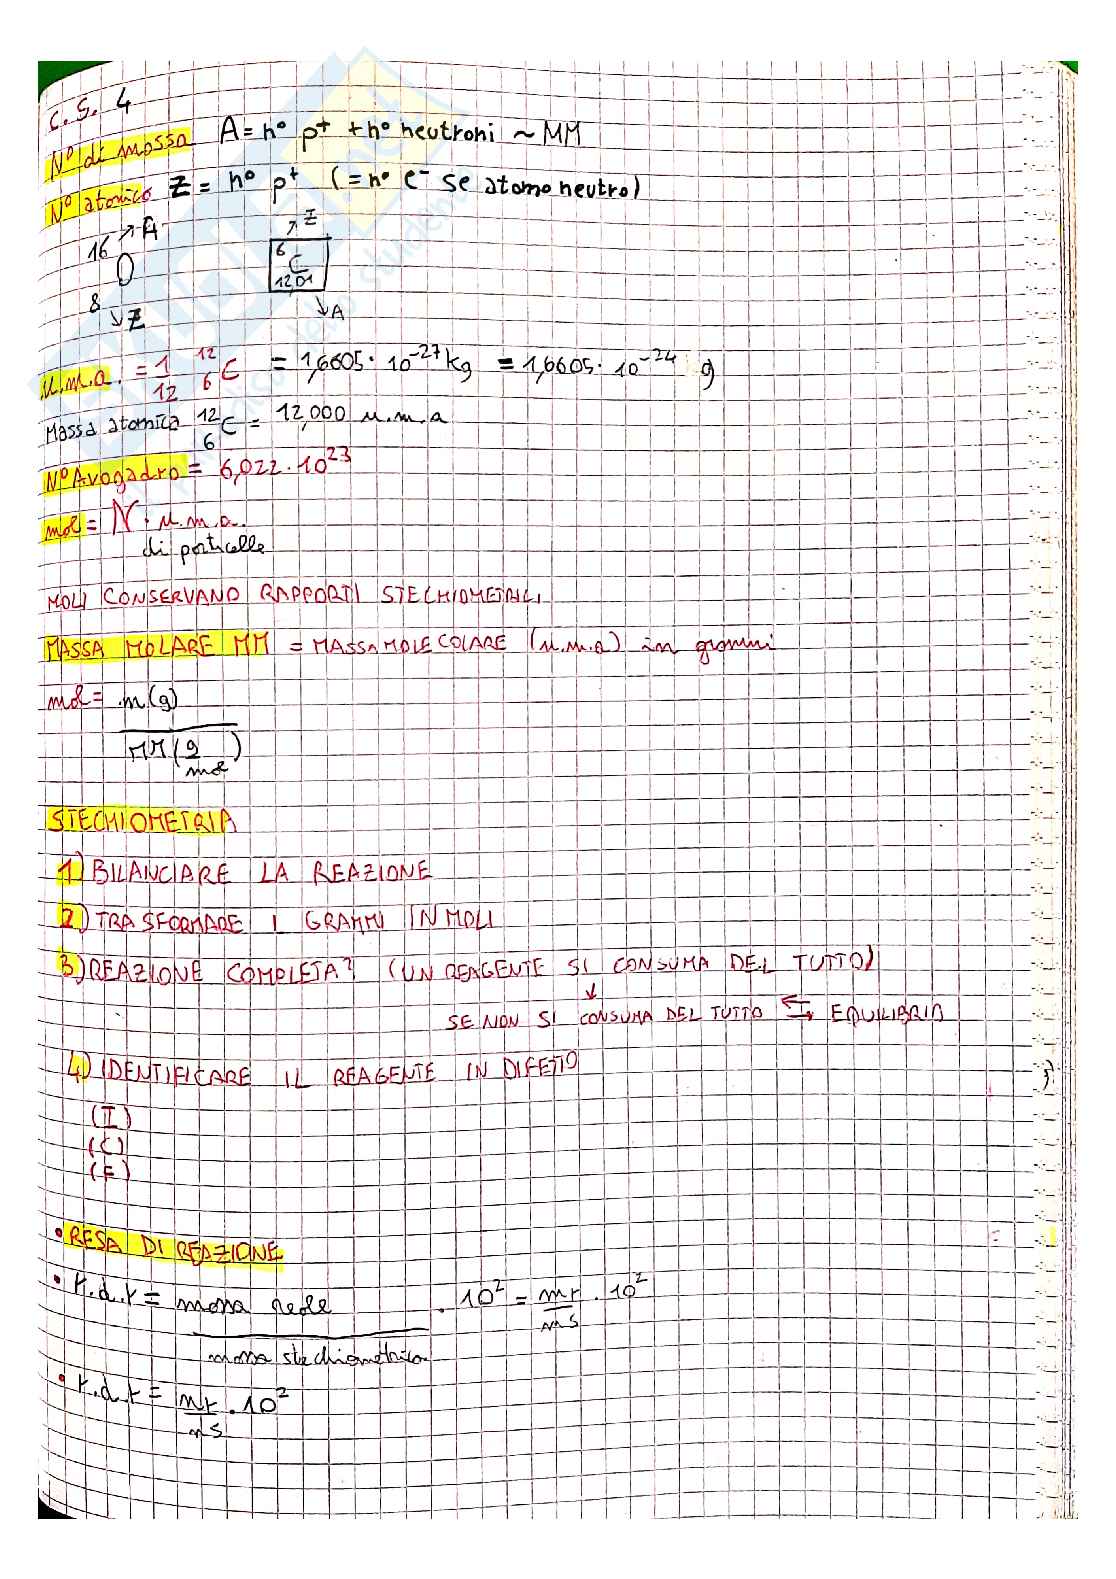 C.S. 4
N° di massa A = n° p⁺ + n° neutroni ~ MM
N° atomico Z = n° p⁺ (= n° e⁻ se atomo neutro)
16 ↗ A
O
8 ↘ Z
↗ Z
6
C
12,01
↘ A
u.m.a. = 1/12 ¹²₆C = 1,6605 · 10⁻²⁷ kg = 1,6605 · 10⁻²⁴ g
Massa atomica ¹²₆C = 12,000 u.m.a
N° Avogadro = 6,022 · 10²³
mol = N · u.m.a.
di particelle
MOLI CONSERVANO RAPPORTI STECHIOMETRICI
MASSA MOLARE MM = MASSA MOLECOLARE (u.m.a) in grammi
mol = m(g)
MM (g/mol)
STECHIOMETRIA
1) BILANCIARE LA REAZIONE
2) TRASFORMARE I GRAMMI IN MOLI
3) REAZIONE COMPLETA? (UN REAGENTE SI CONSUMA DEL TUTTO)
↓
SE NON SI CONSUMA DEL TUTTO ⇆ EQUILIBRIO
4) IDENTIFICARE IL REAGENTE IN DIFETTO
(I)
(C)
(F)
• RESA DI REAZIONE
• r.d.r = massa reale · 10² = mr/ms · 10²
massa stechiometrica
• r.d.r = nr/ns · 10²